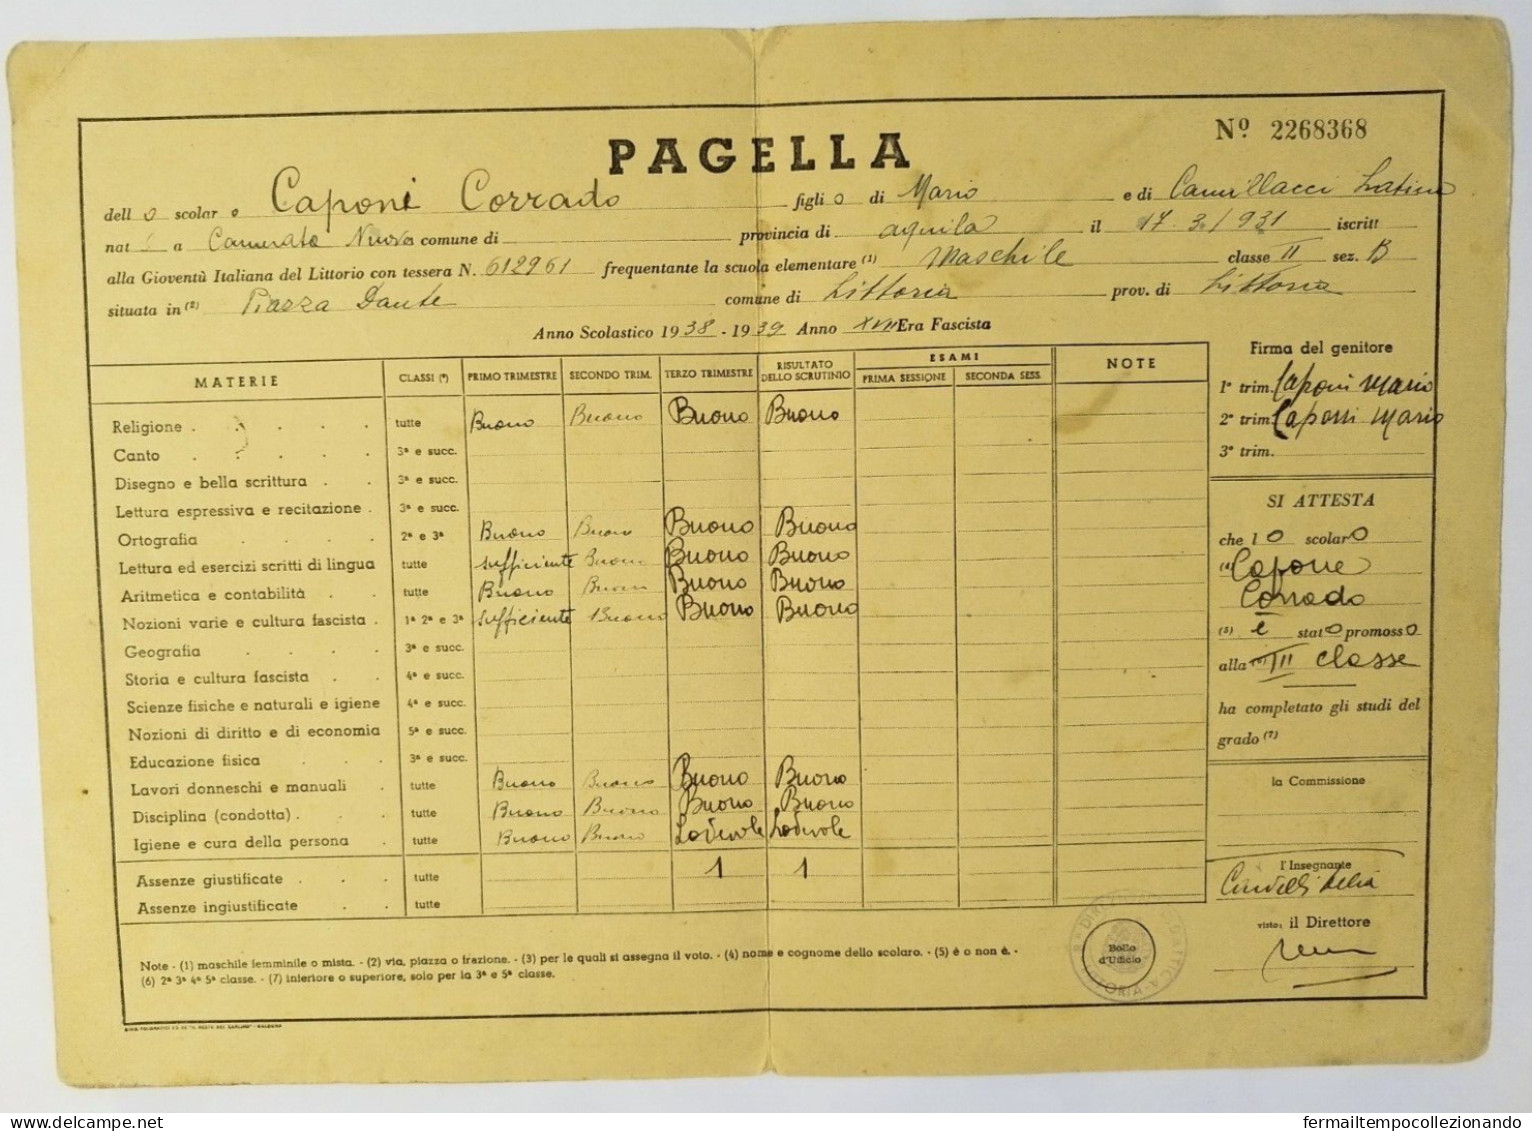 Nº 2268368
PAGELLA
dell o scolar o Caponi Corrado figli o di Mario e di Camillacci Latina
nat i a Camerata Nuova comune di provincia di Aquila il 17. 3. 1931 iscritt
alla Gioventù Italiana del Littorio con tessera N. 612961 frequentante la scuola elementare (1) Maschile classe II sez. B
situata in (2) Piazza Dante comune di Littoria prov. di Littoria
Anno Scolastico 1938 - 1939 Anno XVII Era Fascista
MATERIE CLASSI (*) PRIMO TRIMESTRE SECONDO TRIM. TERZO TRIMESTRE RISULTATO DELLO SCRUTINIO ESAMI PRIMA SESSIONE SECONDA SESS. NOTE
Religione . . . . . tutte Buono Buono Buono Buono
Canto . . . . . 3ª e succ.
Disegno e bella scrittura . . 3ª e succ.
Lettura espressiva e recitazione . 3ª e succ.
Ortografia . . . . 2ª e 3ª Buono Buono Buono Buono
Lettura ed esercizi scritti di lingua tutte sufficiente Buono Buono Buono
Aritmetica e contabilità . . tutte Buono Buono Buono Buono
Nozioni varie e cultura fascista . 1ª 2ª e 3ª sufficiente Buono Buono Buono
Geografia . . . . 3ª e succ.
Storia e cultura fascista . . 4ª e succ.
Scienze fisiche e naturali e igiene 4ª e succ.
Nozioni di diritto e di economia 5ª e succ.
Educazione fisica . . . 3ª e succ.
Lavori donneschi e manuali . tutte Buono Buono Buono Buono
Disciplina (condotta) . . . tutte Buono Buono Buono Buono
Igiene e cura della persona . tutte Buono Buono Lodevole Lodevole
Assenze giustificate . . . tutte 1 1
Assenze ingiustificate . . tutte
Firma del genitore
1º trim. Caponi Mario
2º trim. Caponi Mario
3º trim.
SI ATTESTA
che l o scolaro
(4) Capone
Corrado
(5) è stato promosso
alla (6) III classe
ha completato gli studi del
grado (7)
la Commissione
l'Insegnante
visto: il Direttore
Bollo
d'Ufficio
Note - (1) maschile femminile o mista. - (2) via, piazza o frazione. - (3) per le quali si assegna il voto. - (4) nome e cognome dello scolaro. - (5) è o non è. -
(6) 2ª 3ª 4ª 5ª classe. - (7) inferiore o superiore, solo per la 3ª e 5ª classe.
delcampe.net
fermailtempocollezionando